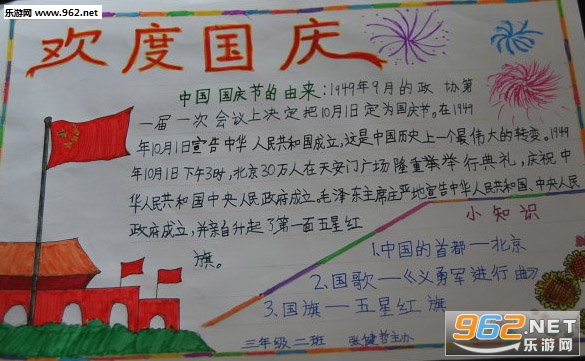 乐游网 www.962.net
欢度国庆
中国 国庆节的由来:1949年9月的政协第
一届一次会议上决定把10月1日定为国庆节。在1949
年10月1日宣告中华人民共和国成立,这是中国历史上一个最伟大的转变。1949
年10月1日下午3时,北京30万人在天安门广场隆重举举行典礼,庆祝中
华人民共和国中央人民政府成立。毛泽东主席庄严地宣告中华人民共和国、中央人民
政府成立,并亲自升起了第一面五星红
旗。
小知识
1.中国的首都一北京
2.国歌一《义勇军进行曲》
3.国旗一五星红旗
三年级二班 张健哲主办
962.NET
乐游网